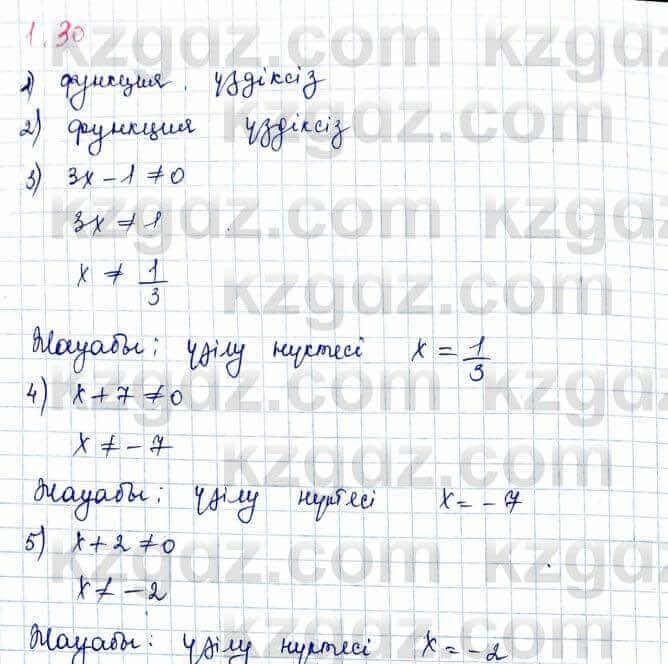 1.30
1) функция үздіксіз
2) функция үздіксіз
3) 3x - 1 ≠ 0
3x ≠ 1
x ≠ 1/3
Жауабы: үзілу нүктесі x = 1/3
4) x + 7 ≠ 0
x ≠ -7
Жауабы: үзілу нүктесі x = -7
5) x + 2 ≠ 0
x ≠ -2
Жауабы: үзілу нүктесі x = -2
kzgdz.com